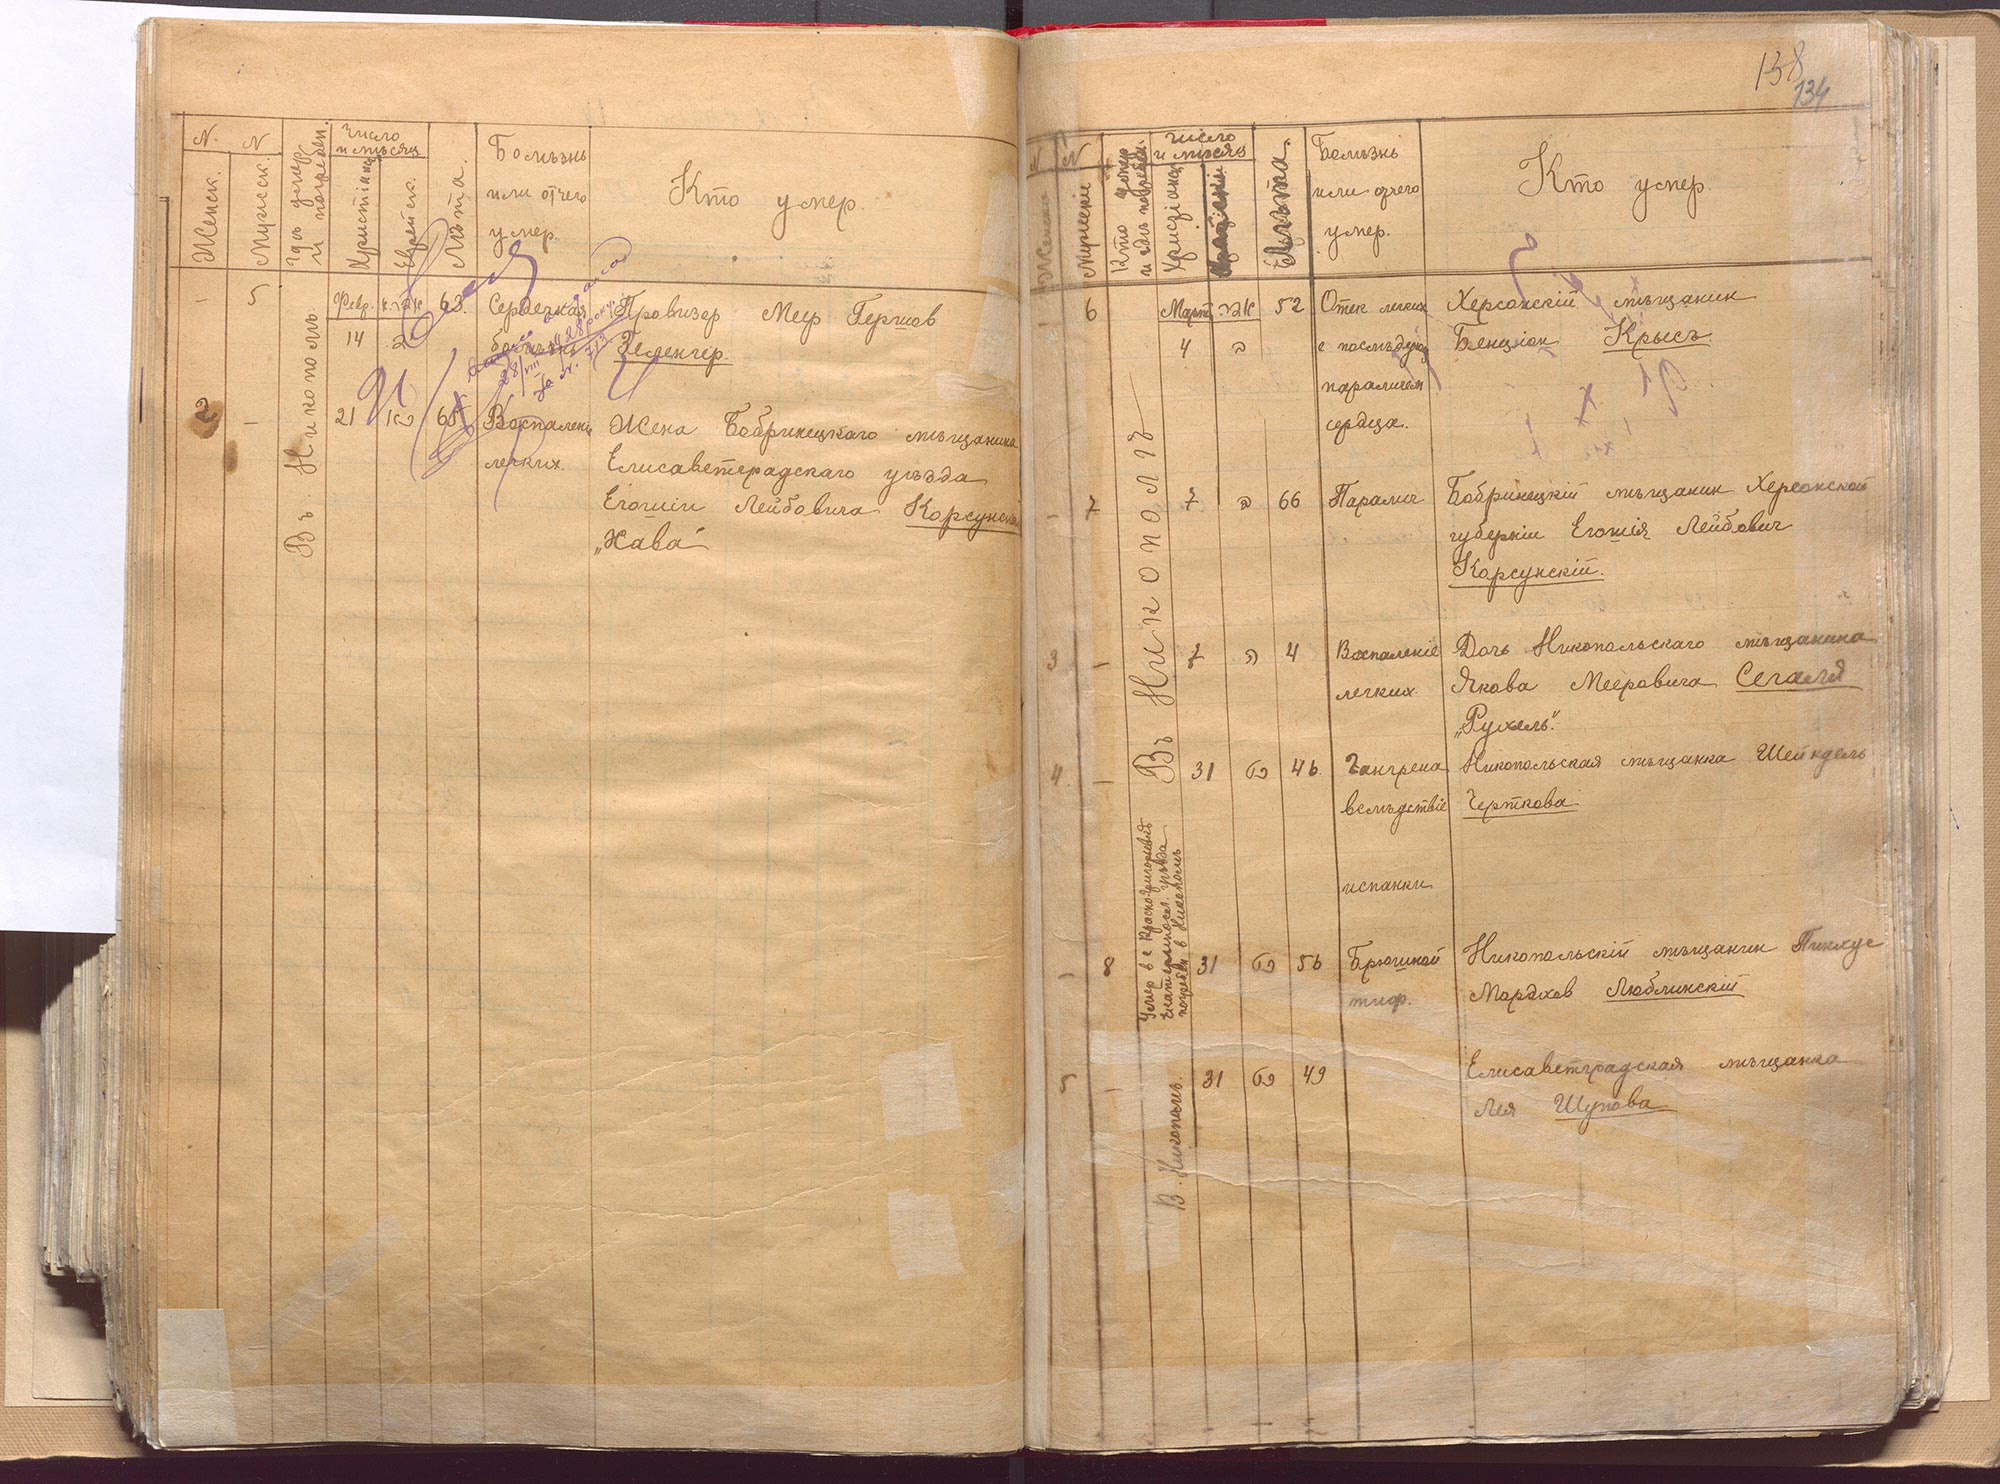 138
134
N. N
Женск.
Мужск.
Гдѣ умер и погребен.
Число и мѣсяц
Христіанск
Еврейск.
Лѣта.
Болѣзнь
или отчего
умер.
Кто умер.
- 5 Февр. 63. Сердечная Провизор Меер Гершов
14 болѣзнь Зеленгер.
Въ Никополѣ.
28/VIII 1928 року
за №. 713
2 - 21 כט 65 Воспаленіе Жена Бобринецкаго мѣщанина
легких. Елисаветградскаго уѣзда
Егошіи Лейбовича Корсунскаго
„Хава“
N N
Женски
Мужскіе
Кто умер и гдѣ погребен.
Число и мѣсяц
Христіанск
Еврейскій
Лѣта.
Болѣзнь
или отчего
умер.
Кто умер.
6 Март 52 Отек легких Херсонскій мѣщанин
4 с послѣдую Бенціон Крысъ.
параличем
сердца.
Въ Никополѣ
- 7 7 66 Паралич Бобринецкій мѣщанин Херсонской
губерніи Егошія Лейбович
Корсунскій.
3 - 7 4 Воспаленіе Дочь Никопольскаго мѣщанина
легких. Якова Мееровича Сегаля
„Рухель“.
4 - 31 46. Гангрена Никопольская мѣщанка Шейндель
вслѣдствіе Черткова
испанки
Умер в с Красногригорьевкѣ
Екатериносл. уѣзда
погребен в Никополѣ
- 8 31 56 Брюшной Никопольскій мѣщанин Пинхус
тиф. Мордхов Люблинскій
В. Никополѣ.
5 - 31 49 Елисаветградская мѣщанка
Лея Шупова